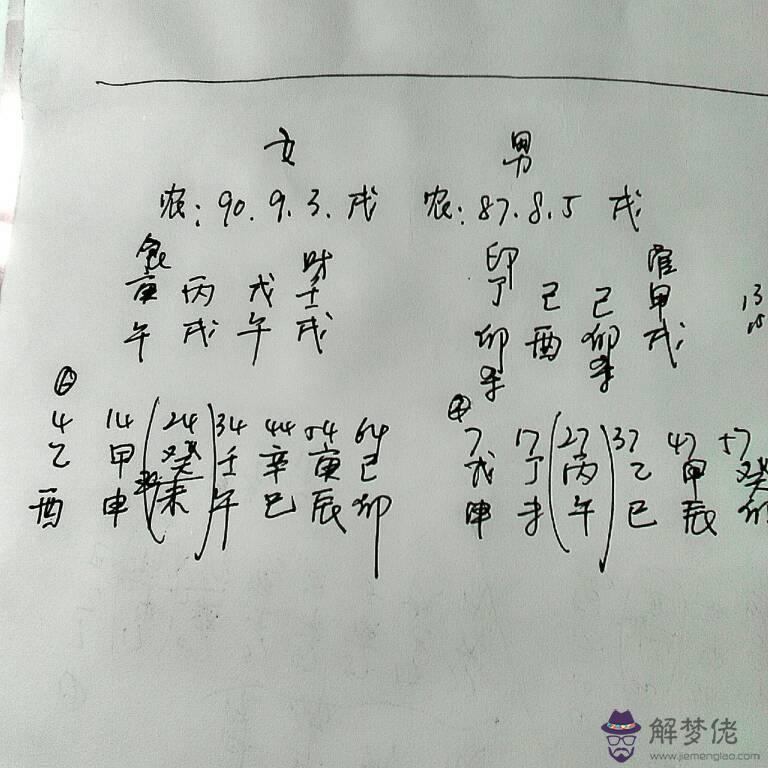 女 男
农: 90.9.3. 戌 农: 87.8.5 戌
食 财 印 官
庚 丙 戊 壬 丁 己 己 甲
午 戌 午 戌 卯 酉 卯 戌
4 14 24 34 44 54 64 7 17 27 37 47 57
乙 甲 癸 壬 辛 庚 己 戊 丁 丙 乙 甲 癸
酉 申 未 午 巳 辰 卯 申 未 午 巳 辰 卯
解梦佬
www.jiemenglao.com